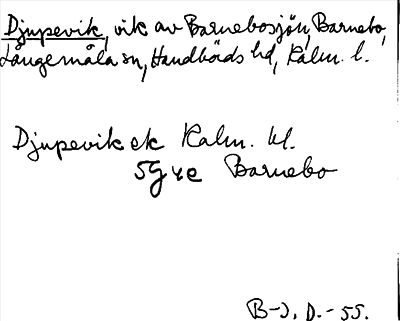 Djupevik, vik av Barnebosjön, Barnebo,
Långemåla sn, Handbörds hd, Kalm. l.
Djupevik ek Kalm. kl.
5G4e Barnebo
B-J. D. - 55.